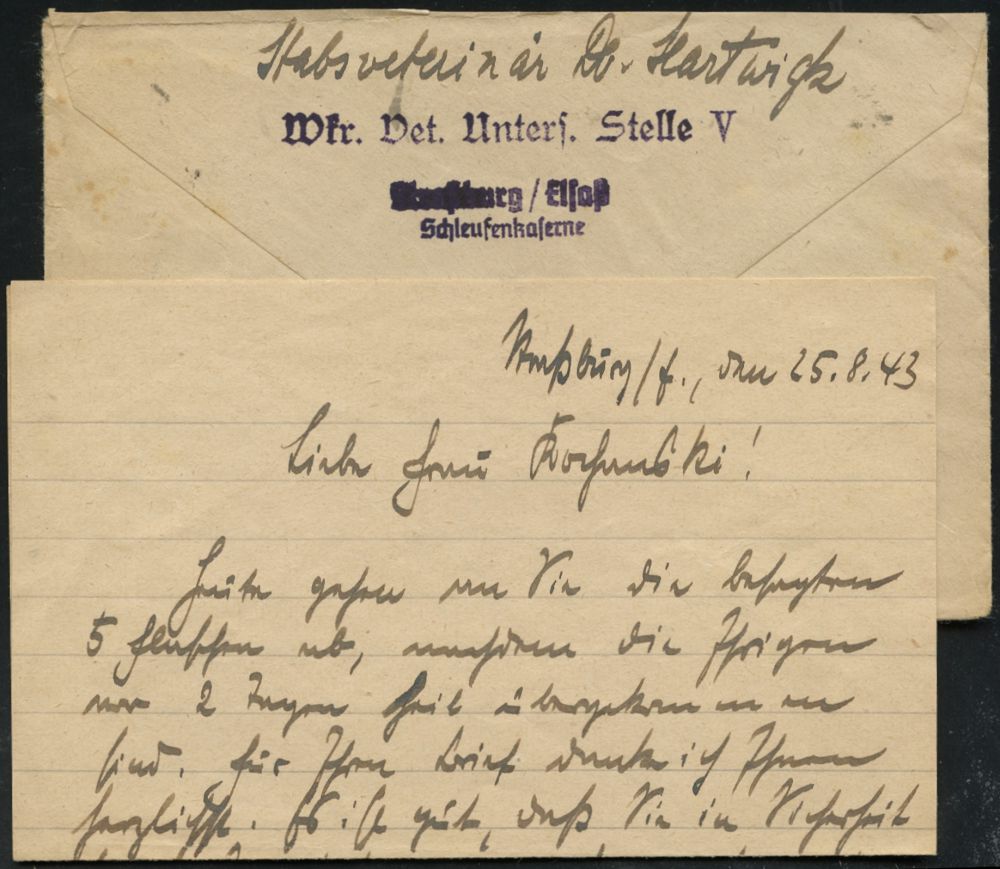 Stabsveterinär Dr. Hartwigk
Wkr. Vet. Unters. Stelle V
Straßburg / Elsaß
Schleufenkaserne
Straßburg / E., den 25.8.43
Liebe Frau Kochanski!
Heute gehen an Sie die besagten
5 Flaschen ab, nachdem die Ihrigen
vor 2 Tagen heil übergekommen
sind. Für Ihren Brief danke ich Ihnen
herzlichst. Es ist gut, daß Sie in Sicherheit